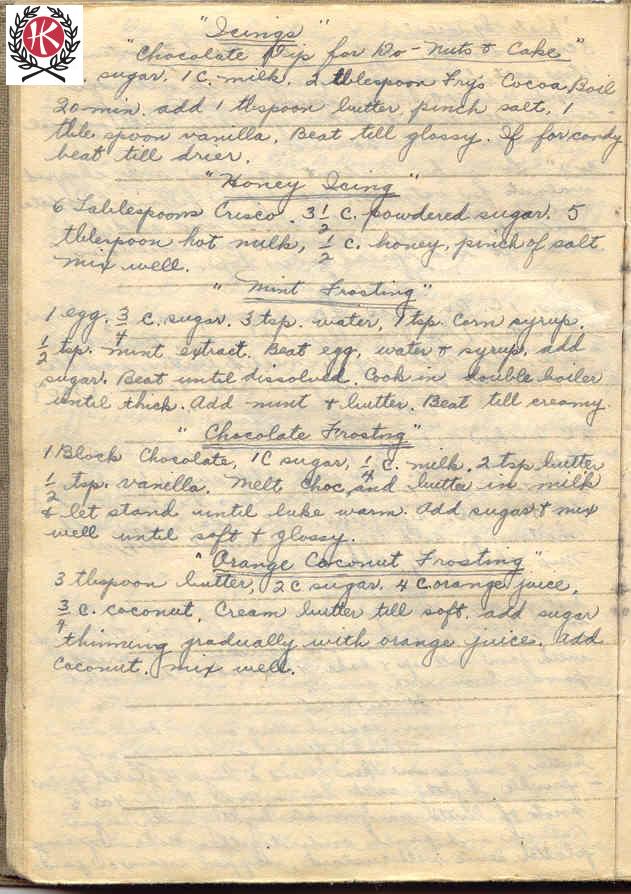 "Icings"
"Chocolate Dip for Do-Nuts & Cake"
. sugar. 1 C. milk. 2 tblespoon Fry's Cocoa Boil
20 min. add 1 tbspoon butter, pinch salt, 1
tble spoon vanilla. Beat till glossy. If for candy
beat till drier.
"Honey Icing"
6 Tablespoons Crisco. 3 1/2 C. powdered sugar. 5
tblespoon hot milk, 1/2 c. honey, pinch of salt
mix well.
"Mint Frosting"
1 egg. 3/4 C. sugar. 3 tsp. water, 1 tsp. corn syrup.
1/2 tsp. mint extract. Beat egg, water & syrup. add
sugar. Beat until dissolved. Cook in double boiler
until thick. Add mint & butter. Beat till creamy
"Chocolate Frostng"
1 Block Chocolate, 1C sugar, 1/4 C. milk. 2 tsp butter
1/2 tsp. vanilla. Melt choc, and butter in milk
& let stand until luke warm. Add sugar & mix
well until soft & glossy.
"Orange Coconut Frosting"
3 tbspoon butter, 2 C sugar. 4 C. orange juice,
3/4 C. coconut. Cream butter till soft. add sugar
thinning gradually with orange juice. Add
coconut. mix well.
K